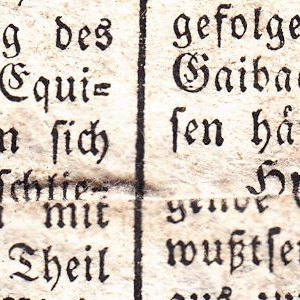 g des
Equi⸗
n ſich
ſchlie⸗
mit
Theil
gefolge
Gaiba
ſen hä
gende
wußtſe